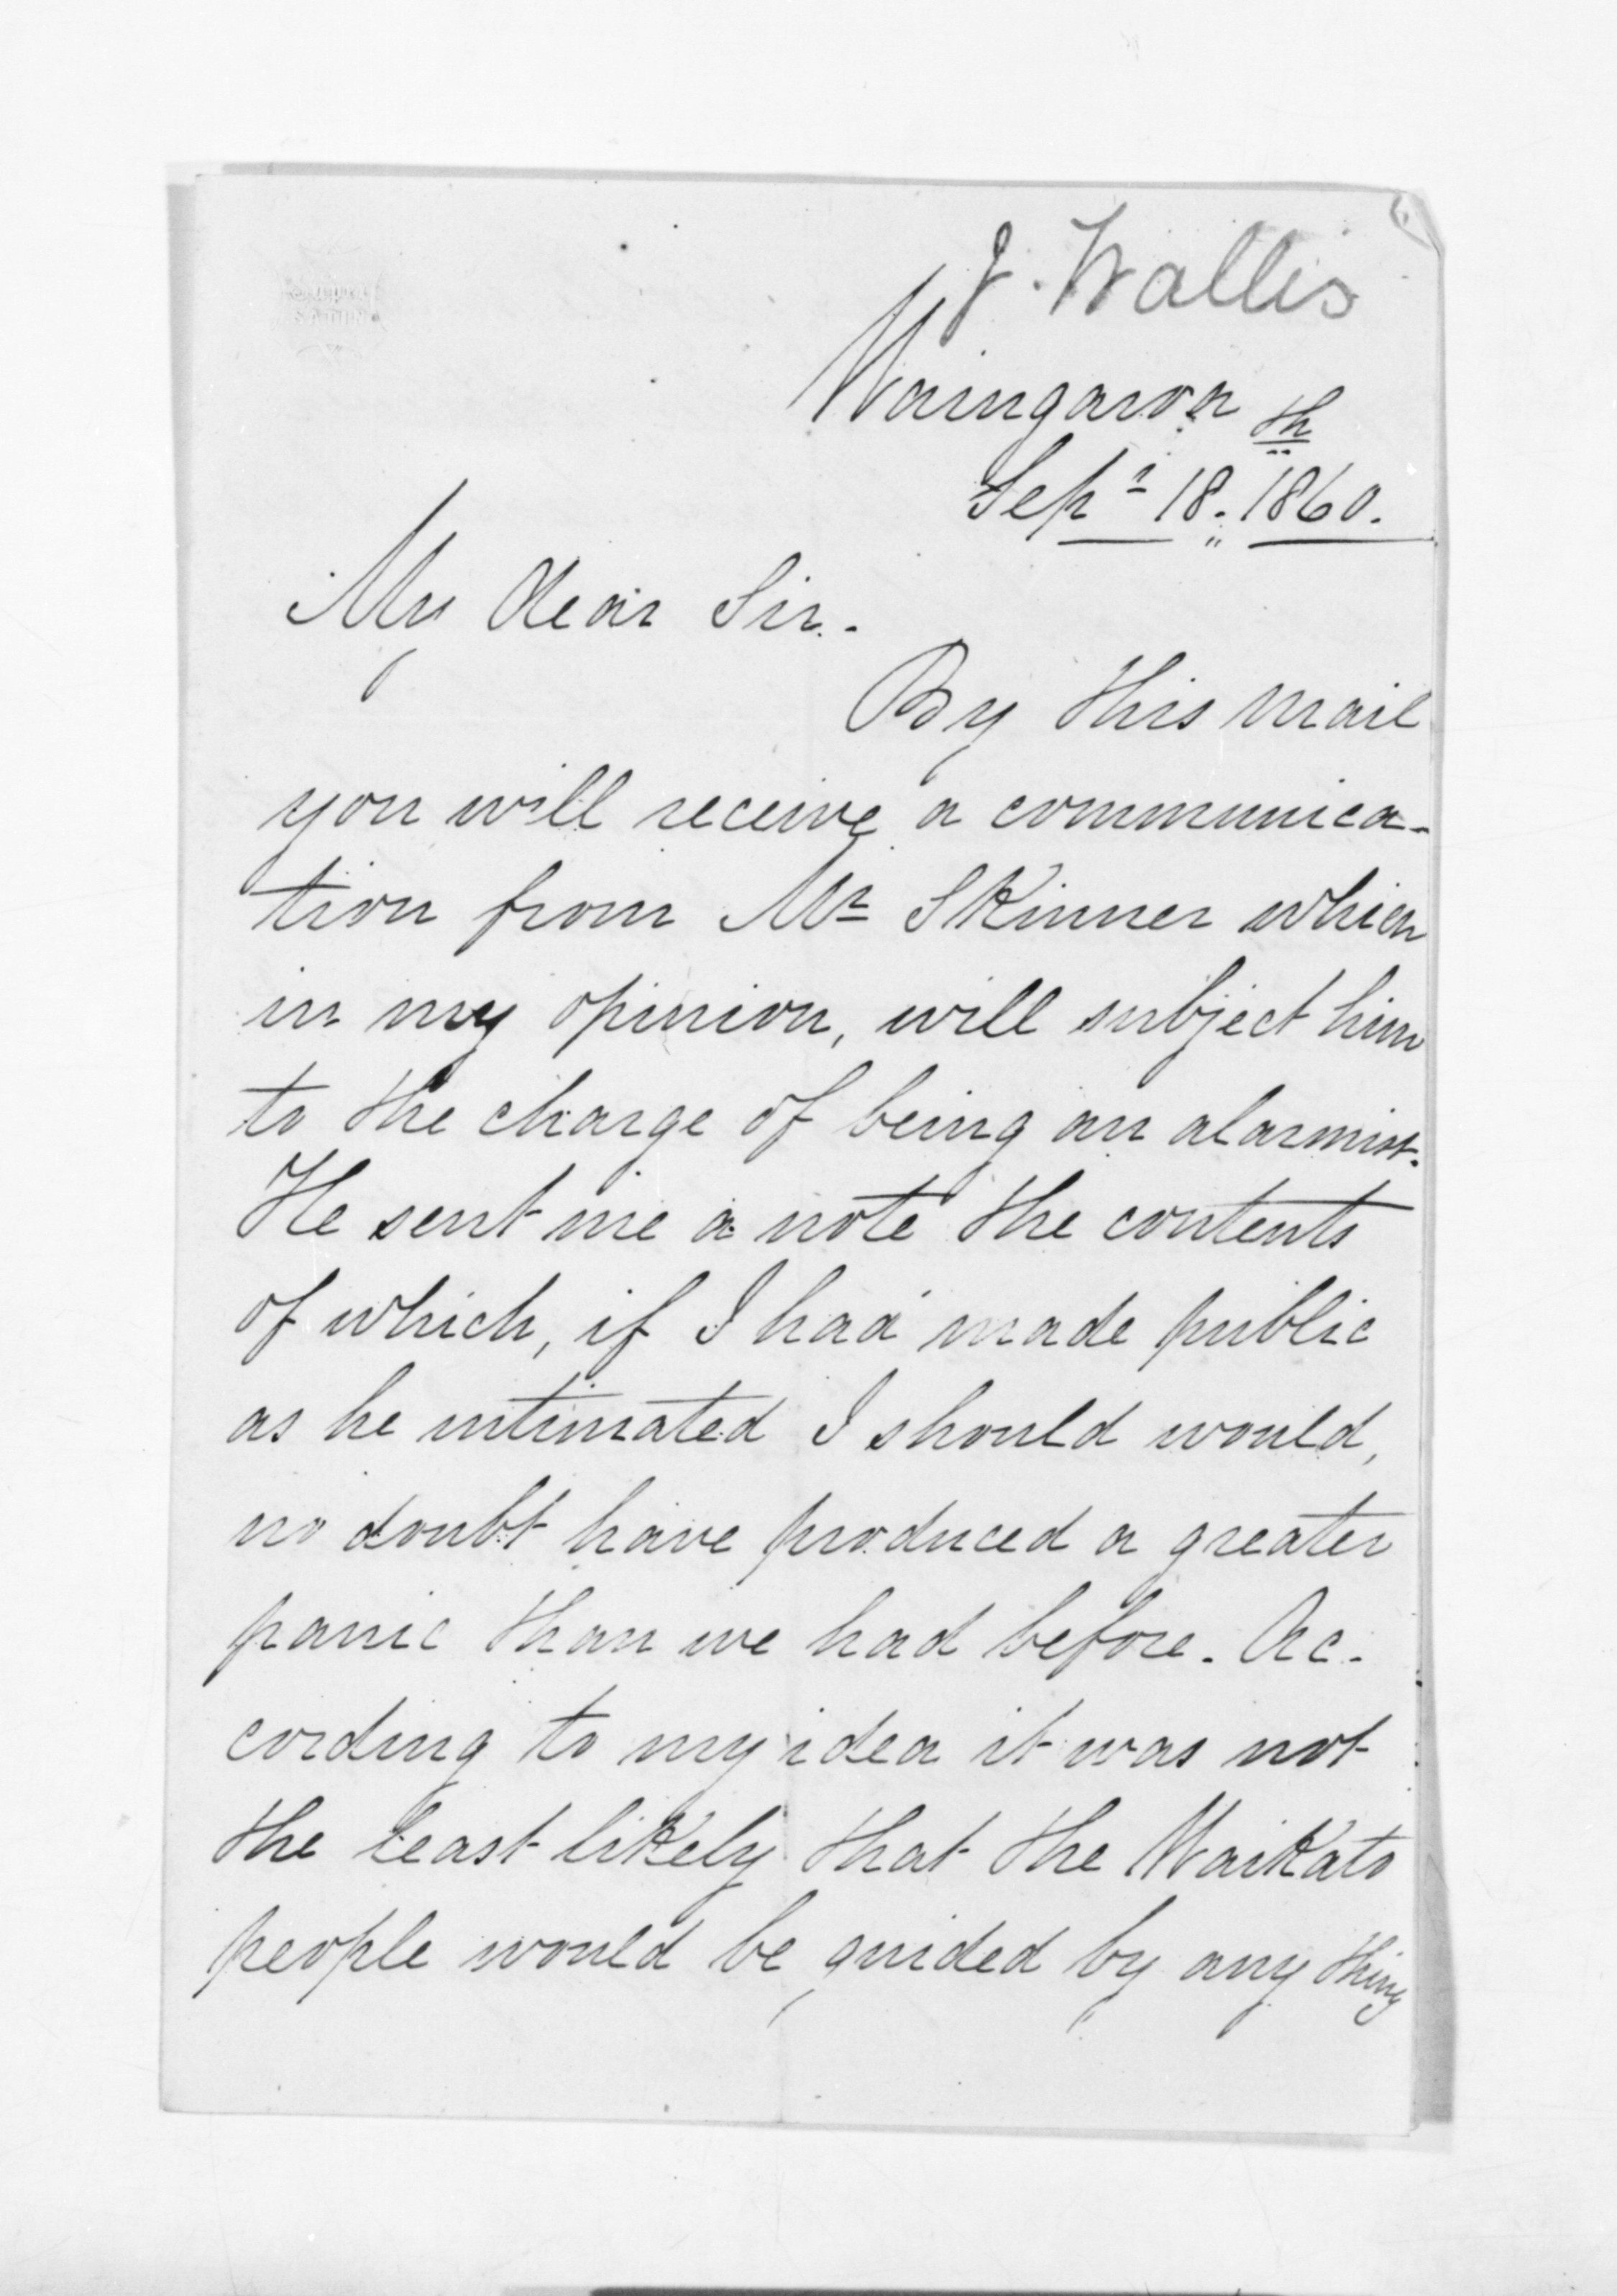 J. Wallis
Waingaroa
Sept 18th. 1860.
My dear Sir.
By this mail
you will receive a communica-
tion from Mr Skinner which
in my opinion, will subject him
to the charge of being an alarmist.
He sent me a note the contents
of which, if I had made public
as he intimated I should would,
no doubt have produced a greater
panic than we had before. Ac-
cording to my idea it was not
the least likely that the Waikato
people would be guided by any thing